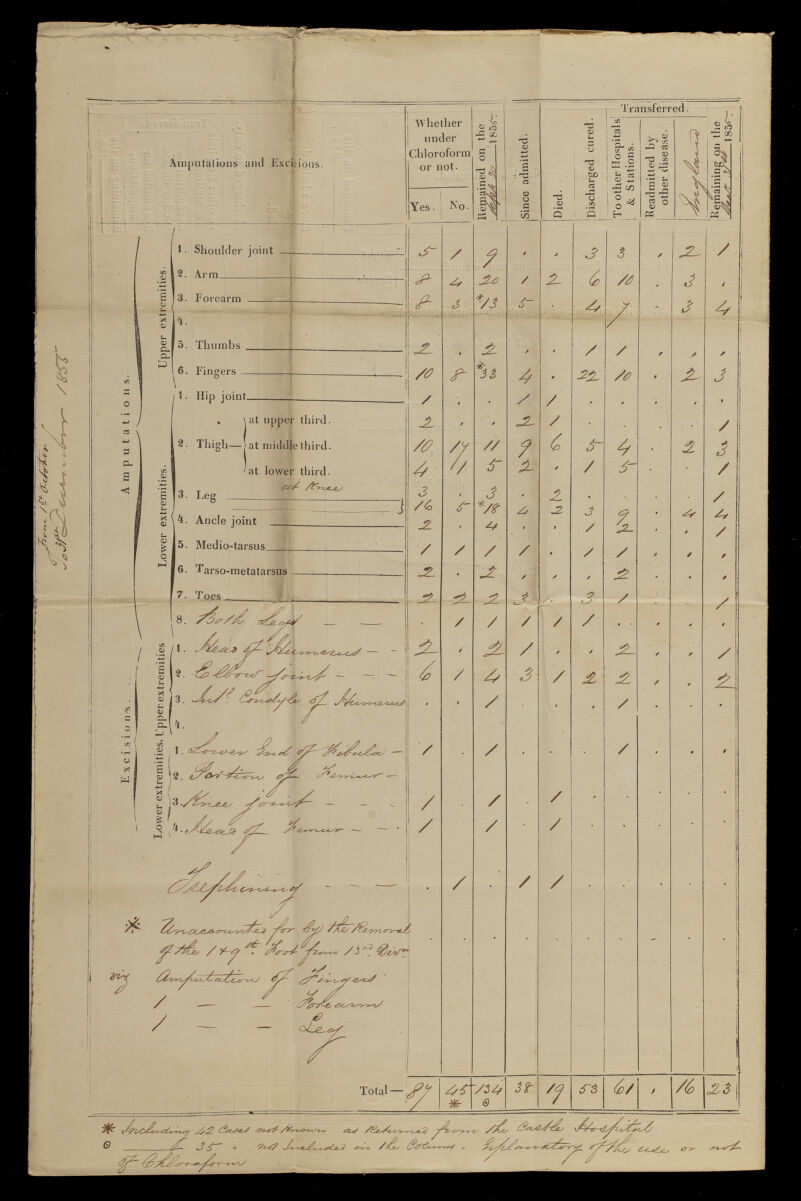 from 1st October
to 31st December 1855
Transferred.
Amputations and Excisions.
Whether under Chloroform or not.
Yes. No.
Remained on the 1855.
Since admitted.
Died.
Discharged cured.
To other Hospitals & Stations.
Readmitted by other disease.
England
Remaining on the 1855
Amputations.
Upper extremities.
1. Shoulder joint 5 1 9 . . 3 3 . 2 1
2. Arm 8 4 20 1 2 6 10 . 3 .
3. Forearm 8 3 *13 5 . 4 7 - 3 4
4.
5. Thumbs 2 . 2 . . 1 1 . . .
6. Fingers 10 8 *33 4 . 22 10 . 2 3
Lower extremities.
1. Hip joint 1 . . 1 1 . . . . .
2. Thigh— at upper third. 2 . . 2 1 . . . . 1
at middle third. 10 17 11 9 6 5 4 . 2 3
at lower third. 4 11 5 2 . 1 5 . . 1
at Knee 3 . 3 . 2 . . . . 1
3. Leg 16 5 *18 4 2 3 9 . 4 4
4. Ancle joint 2 . 4 . . 1 2 . . 1
5. Medio-tarsus 1 1 1 1 . 1 1 . . .
6. Tarso-metatarsus 2 . 2 . . . 2 . . .
7. Toes 2 2 2 3 . 3 1 . . 1
8. Both Legs — — . 1 1 1 1 1 . . . .
Excisions.
Upper extremities
1. Head of Humerus - - 2 . 2 1 . . 2 . . 1
2. Elbow joint - - - 6 1 4 3 1 2 2 . . 2
3. Intl. Condyle of Humerus . . 1 . . . 1 . . .
4.
Lower extremities.
1. Lower End of Fibula — 1 . 1 . . . 1 . . .
2. Portion of Femur —
3. Knee joint - - - 1 . 1 . 1 . . . . .
4. Head of Femur - - - 1 . 1 . 1 . . . . .
Trephining - - — . 1 . 1 1 . . . . .
* Unaccounted for by the Removal
of the 1 & 9th. Foot from 13rd. Divn.
viz Amputation of Fingers
1 — — Forearm
1 — — Leg
Total— 87 45 134 38 19 53 61 . 16 23
* ⊙
* Including 42 Cases not Known as Returned from the Castle Hospital
⊙ 35 " not Included in the Column - Explanatory of the use or not
of Chloroform